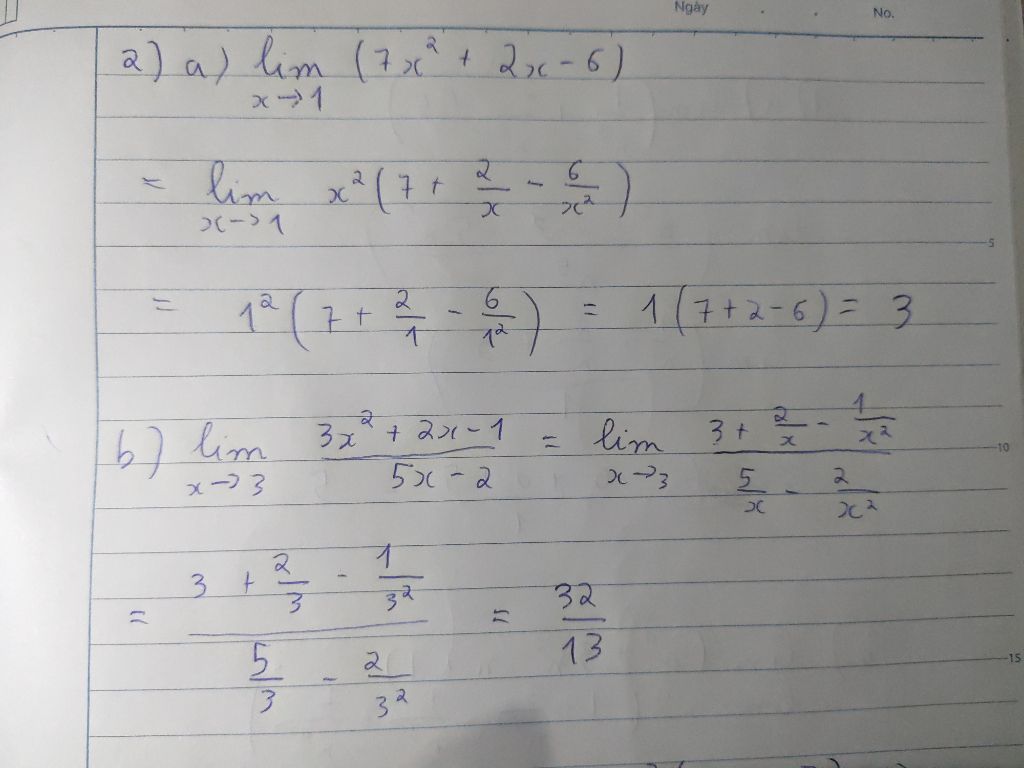 Ngày . . No.
2) a) lim (7x² + 2x - 6)
x→1
= lim x² (7 + 2/x - 6/x²)
x→1
5
= 1² (7 + 2/1 - 6/1²) = 1 (7+2-6) = 3
b) lim (3x² + 2x - 1)/(5x - 2) = lim (3 + 2/x - 1/x²)/(5/x - 2/x²)
x→3 x→3
10
= (3 + 2/3 - 1/3²)/(5/3 - 2/3²) = 32/13
15